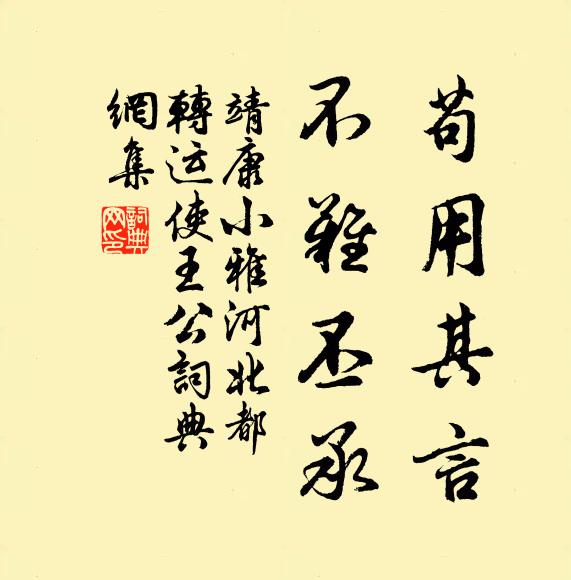 苟用其言
不難丕承
靖康小雅河北都
轉运使王公詞典
網集
詞典
网印